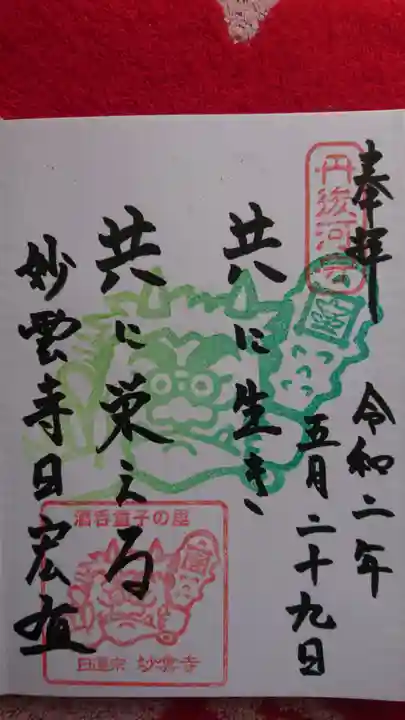 奉拝
丹後河守
令和二年
五月二十九日
共に生き、
共に栄える
妙雲寺日宏
酒呑童子の里
日蓮宗 妙雲寺